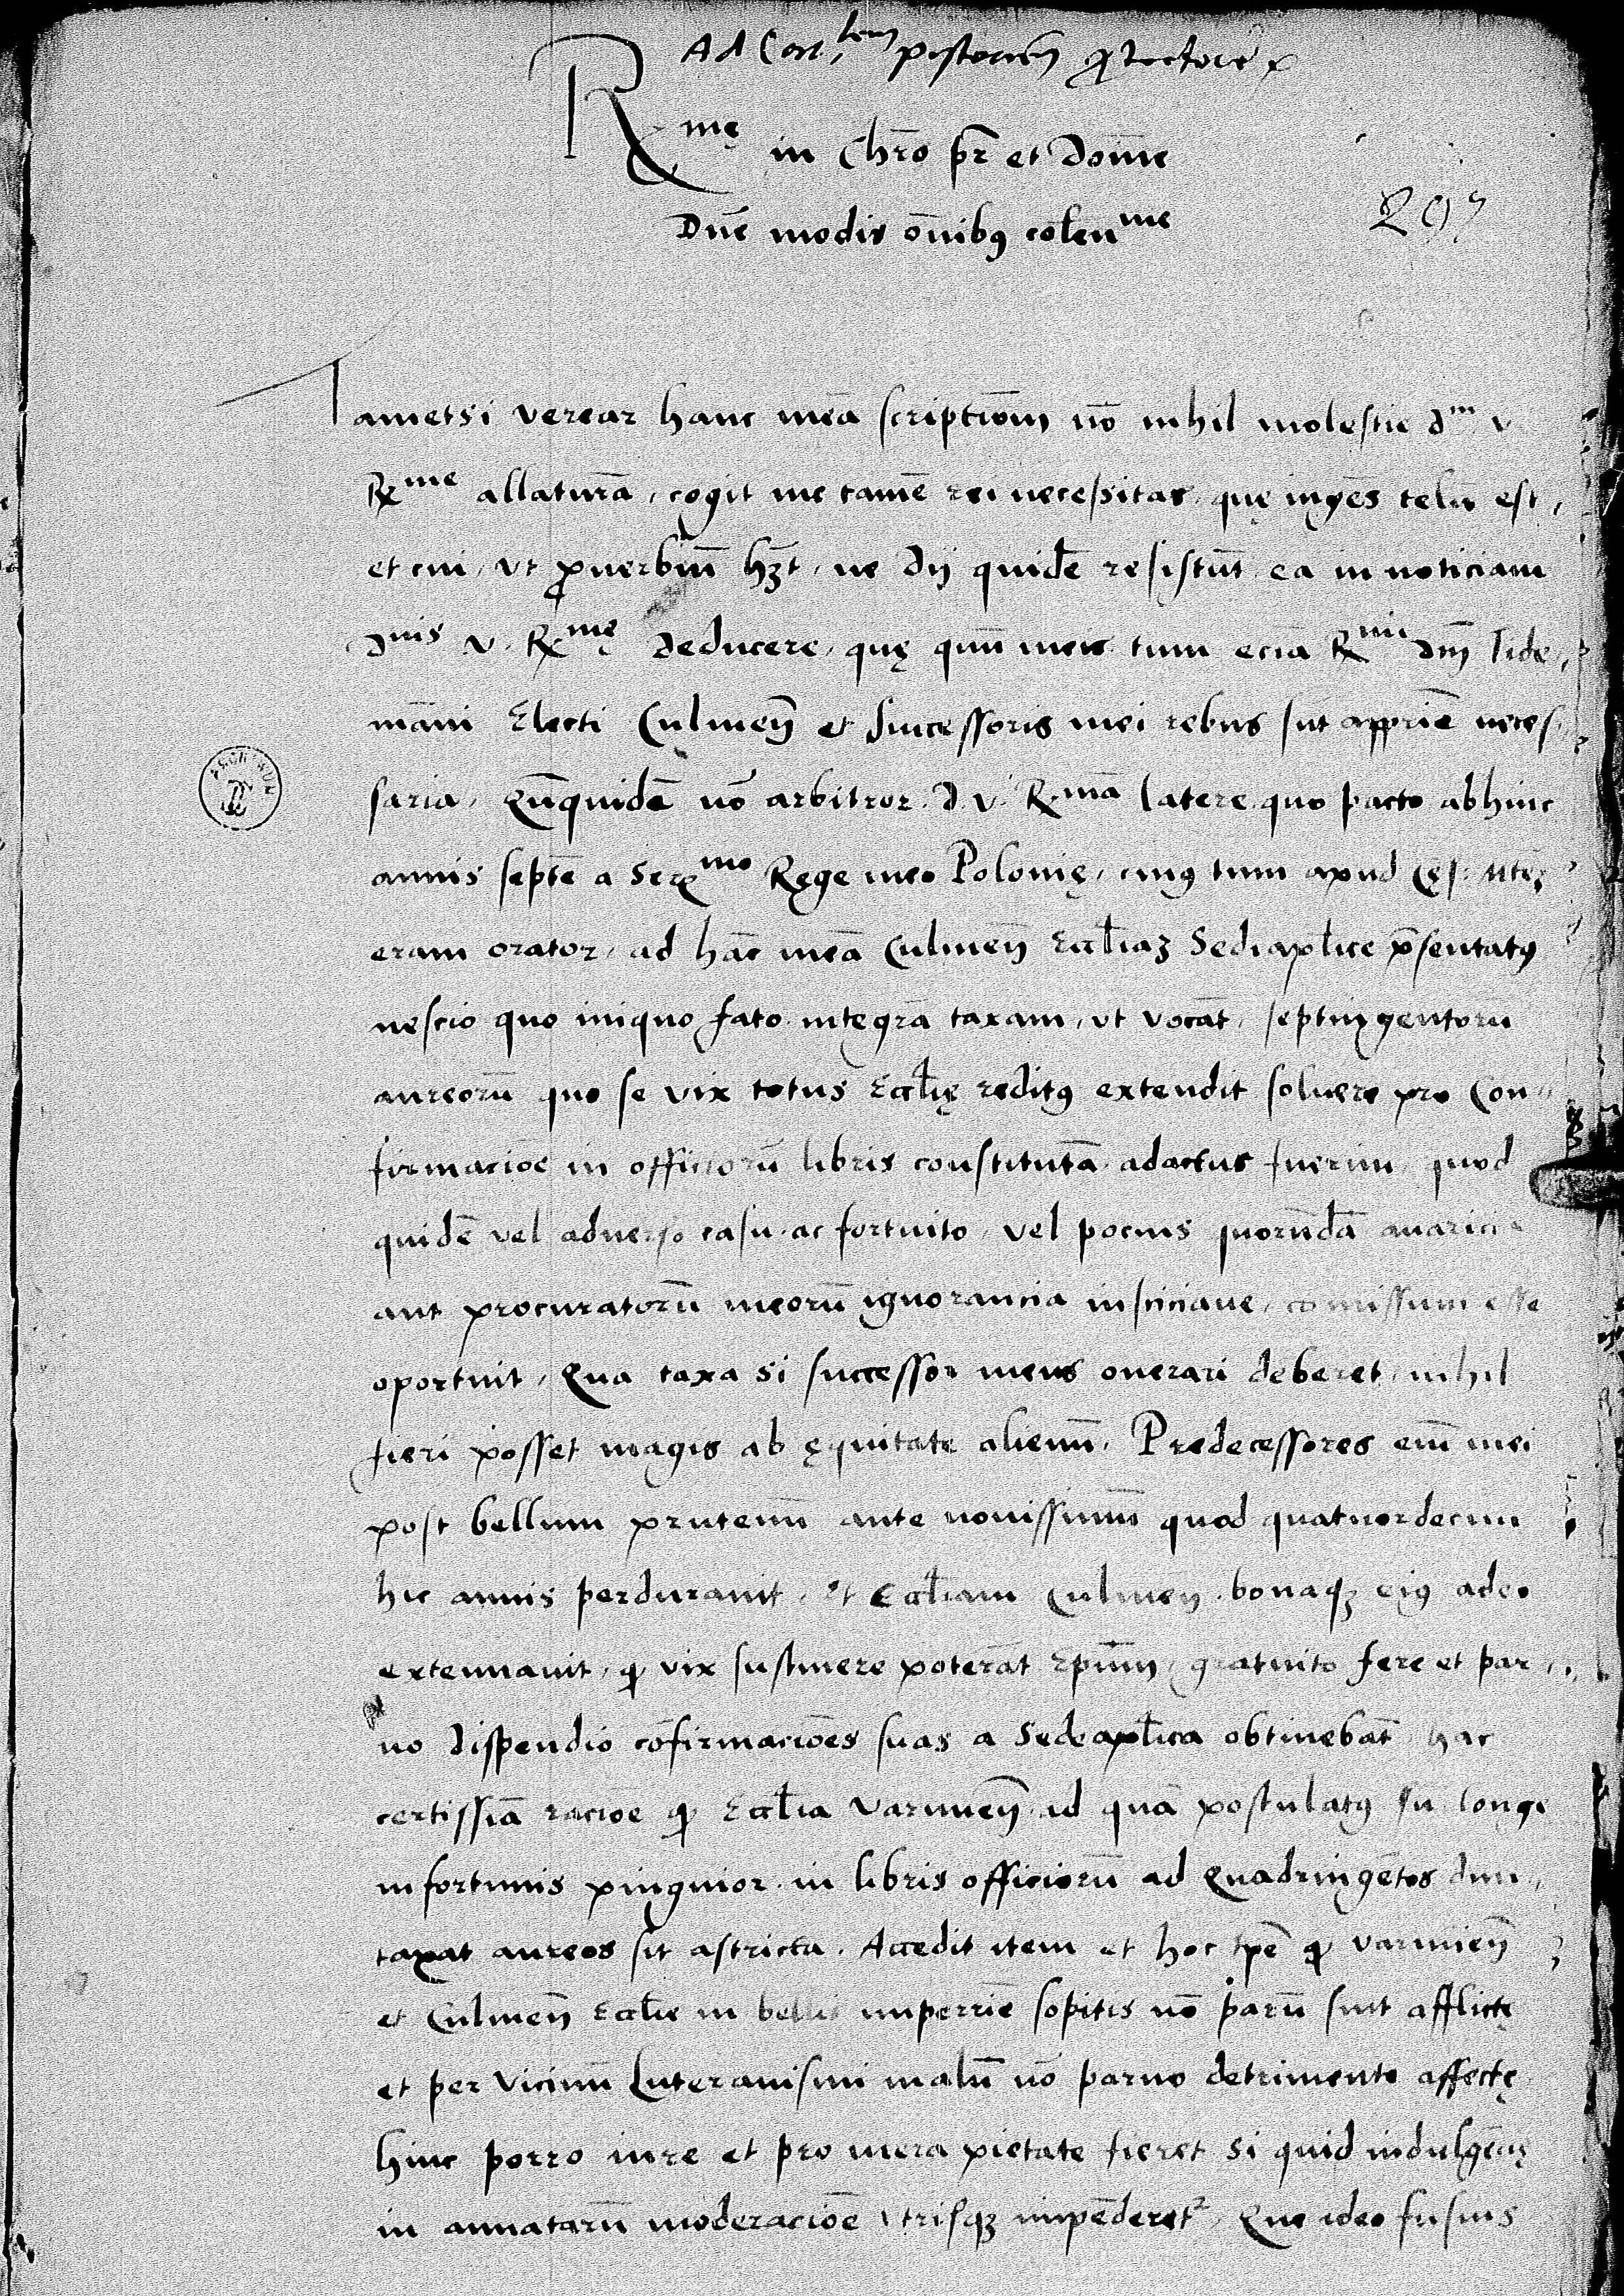 Ad Car.lem pisторien ꝓtectore
Rme in Chro pr et Domine
Dne modis oibus colenme
297
Tametsi verear hanc meã scriptiom nõ nihil molestie dni v
Rme allaturã, cogit me tamẽ rei necessitas, quę ingẽs telũ est,
et cui, vt ꝓuerbiũ hꝫt, ne dij quidẽ resistũt ea in noticiam
dnis v. Rmę deducere, quę quũ meis tum eciã Rmi dnj Tide,
mãni Electi Culmeñ et Successoris mei rebus sũt appriẽ neces,
saria, Qñquidẽ nõ arbitror d. v. Rmã latere quo pacto abhinc
annis septẽ a Sermo Rege meo Polonię, cuiꝯ tum apud Cęs: Mtẽ
eram orator, ad hãc meã Culmeñ Eccliaꝫ Sedi aplice p̄sentatꝯ
nescio quo iniquo fato integrã taxam, vt vocãt, septingentorũ
aureorũ quo se vix totus Ecclię reditꝯ extendit soluere pro Con,,
firmaciõe in officiorũ libris constitutã adactus fuerim, quod
quidẽ vel aduerso casu ac fortuito, vel pocius quorũdã auaricia
aut procuratorũ meorũ ignorancia insciciaue, comissum esse
oportuit, Qua taxa si successor meus onerari deberet, nihil
fieri posset magis ab ęquitate alienũ. Predecessores eñ mei
post bellum prutenũ ante nouissimũ quod quatuordecim
hic annis perdurauit, et Eccliam Culmeñ bonaqꝫ eiꝯ adeo
extenuauit, ꝙ vix sustinere poterãt Epũm, gratuito fere et par,,
uo dispendio cõfirmaciões suas a Sede aplica obtinebãt hac
certissiã raciõe ꝙ Ecclia Varmieñ ad quã postulatꝯ sũ longe
in fortunis pinguior in libris officiorũ ad Quadringẽtos dun,,
taxat aureos sit astricta. Accedit item et hoc tpẽ ꝙ Varmieñ
et Culmeñ Ecclie in bellis nuperrie sopitis nõ parũ sint afflictę
et per vicinũ Luteranismi malũ nõ paruo detrimento affectę
hinc porro iure et pro mera pietate fieret si quid indulgẽcię
in annatarũ moderaciõe vtrisqꝫ impẽderetr, Que ideo fusius